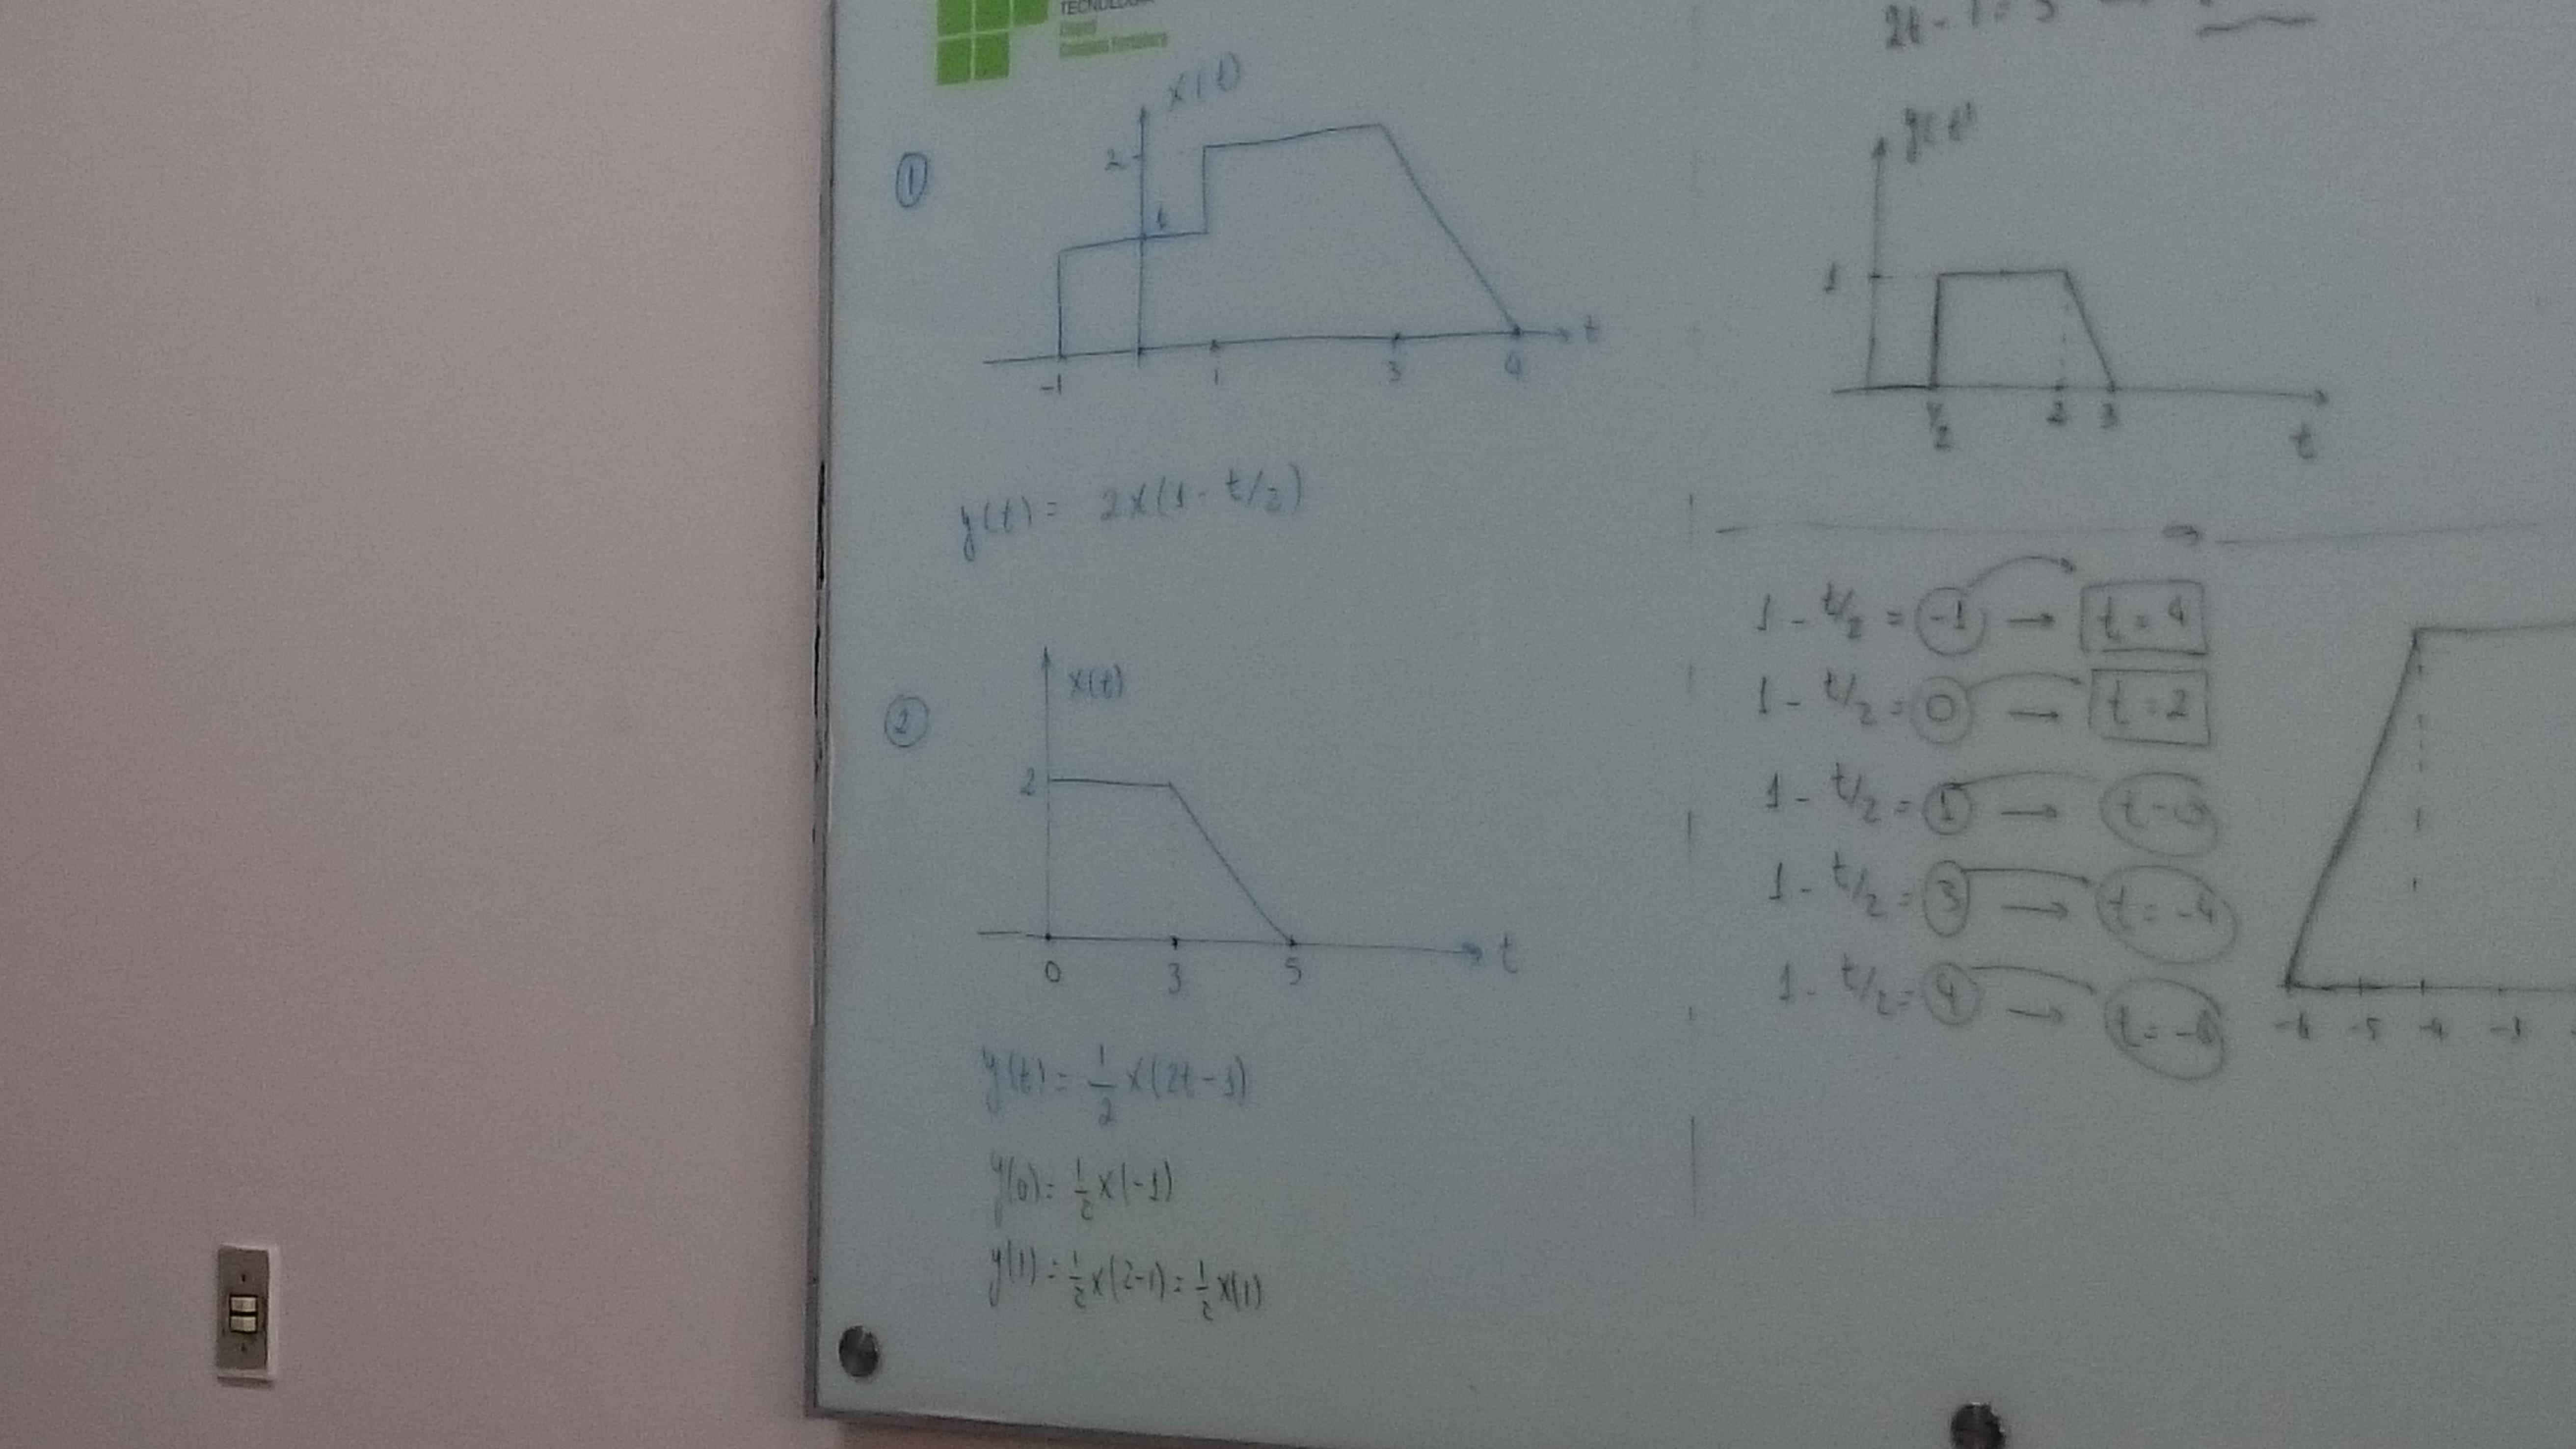 TECNOLOGIA
2t - 1 = 5
①
x(t)
2
1
-1 1 3 4 t
y(t) = 2x(1 - t/2)
②
x(t)
2
0 3 5 t
y(t) = 1/2 x(2t-1)
y(0) = 1/2 x(-1)
y(1) = 1/2 x(2-1) = 1/2 x(1)
y(t)
1
1/2 2 3
t
1 - t/2 = -1 → t = 4
1 - t/2 = 0 → t = 2
1 - t/2 = 1 → t = 0
1 - t/2 = 3 → t = -4
1 - t/2 = 4 → t = -6
-6 -5 -4 -3